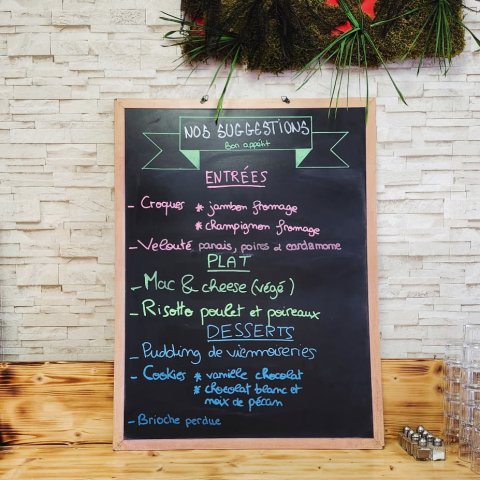 NOS SUGGESTIONS
Bon appétit
ENTRÉES
- Croques * jambon fromage
* champignon fromage
- Velouté panais, poires & cardamome
PLAT
- Mac & cheese (végé)
- Risotto poulet et poireaux
DESSERTS
- Pudding de viennoiseries
- Cookies * vanille chocolat
* chocolat blanc et
noix de pécan
- Brioche perdue